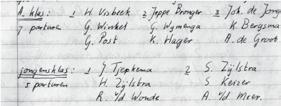 A. klas: 1 H. Visbeek 2 Jappe Dronger 3 Joh. de Jong
7 parturen G. Winkel G. Wymenga K. Bergsma
G. Post K. Hager A. de Groot
jongensklas: 1 J Tjepkema 2 S. Zijlstra
5 parturen H. Zijlstra S. Keizer
R. v/d Woude A. v/d Meer.